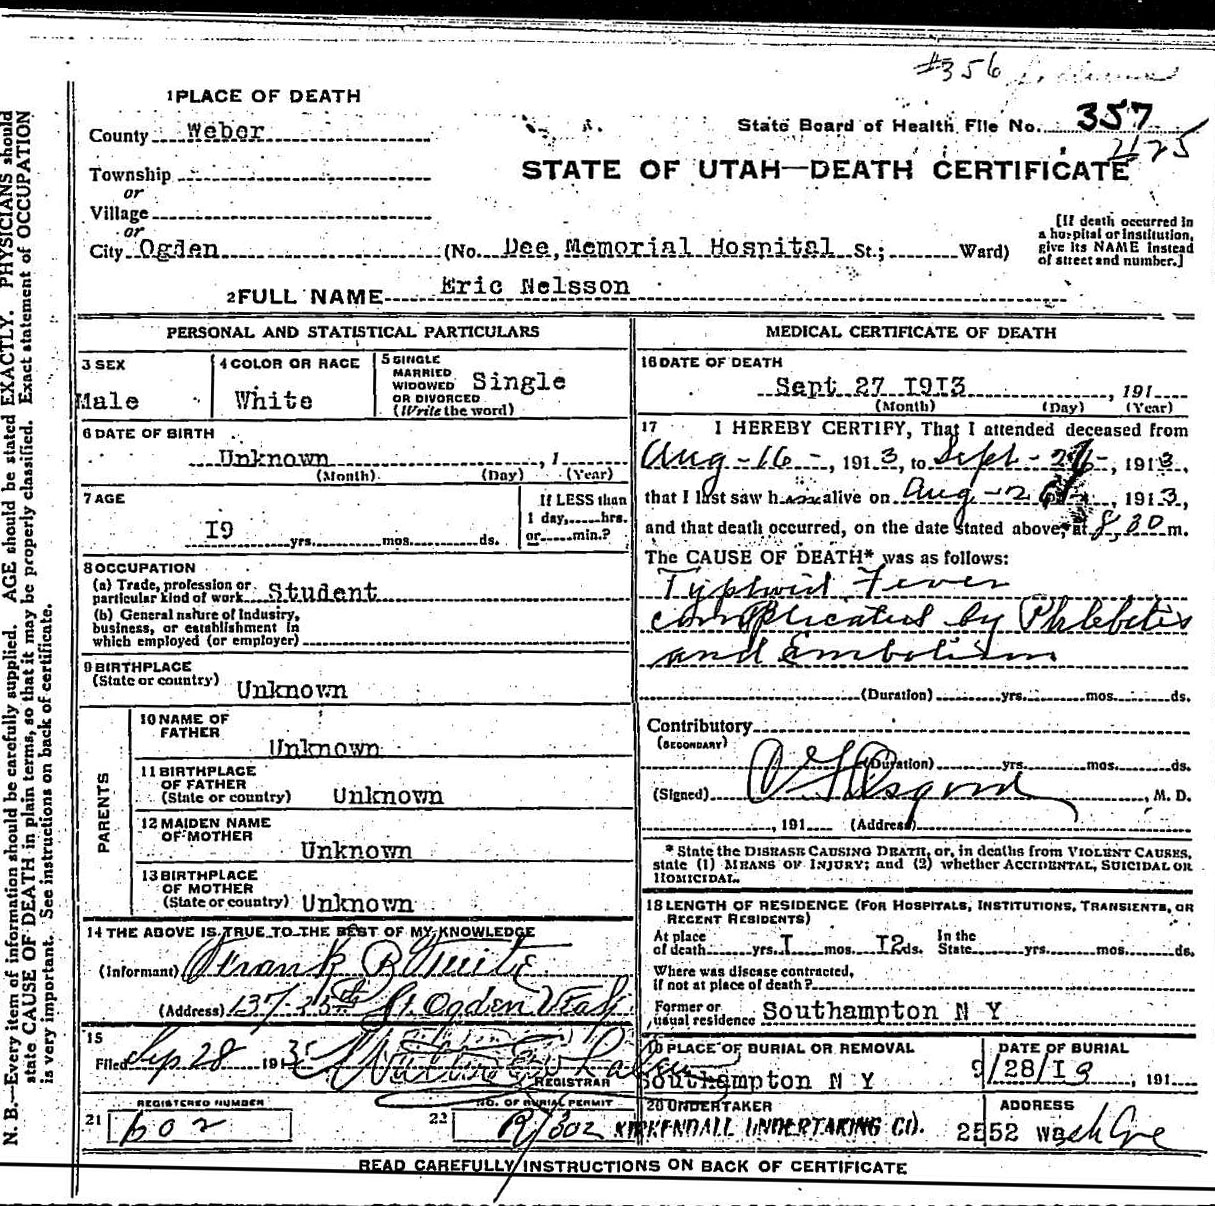 #356
1 PLACE OF DEATH
State Board of Health File No. 357
2125
County Weber
STATE OF UTAH—DEATH CERTIFICATE
Township
or
Village
or
City Ogden (No. Dee, Memorial Hospital St.; Ward)
[If death occurred in
a hospital or institution,
give its NAME instead
of street and number.]
2 FULL NAME Eric Nelsson
PERSONAL AND STATISTICAL PARTICULARS
3 SEX
Male
4 COLOR OR RACE
White
5 SINGLE
MARRIED
WIDOWED
OR DIVORCED
(Write the word)
Single
6 DATE OF BIRTH
Unknown , 1
(Month) (Day) (Year)
7 AGE
I9 yrs. mos. ds.
If LESS than
1 day, hrs.
or min.?
8 OCCUPATION
(a) Trade, profession or
particular kind of work Student
(b) General nature of Industry,
business, or establishment in
which employed (or employer)
9 BIRTHPLACE
(State or country) Unknown
PARENTS
10 NAME OF
FATHER
Unknown
11 BIRTHPLACE
OF FATHER
(State or country) Unknown
12 MAIDEN NAME
OF MOTHER
Unknown
13 BIRTHPLACE
OF MOTHER
(State or country) Unknown
14 THE ABOVE IS TRUE TO THE BEST OF MY KNOWLEDGE
(Informant) Frank B
(Address) 137-25th St. Ogden Utah
15
Filed Sep 28 1913
REGISTRAR
REGISTERED NUMBER
21 602
NO. OF BURIAL PERMIT
22 R/302
MEDICAL CERTIFICATE OF DEATH
16 DATE OF DEATH
Sept 27 I9I3 , 191
(Month) (Day) (Year)
17 I HEREBY CERTIFY, That I attended deceased from
Aug-16-, 1913, to Sept- , 1913,
that I last saw him alive on Aug- , 1913,
and that death occurred, on the date stated above, at 8,30 m.
The CAUSE OF DEATH* was as follows:
Typhoid Fever
complicated by Phlebitis
and Embolism
(Duration) yrs. mos. ds.
Contributory
(SECONDARY)
(Duration) yrs. mos. ds.
(Signed) Osgood , M. D.
, 191 (Address)
* State the DISEASE CAUSING DEATH, or, in deaths from VIOLENT CAUSES,
state (1) MEANS OF INJURY; and (2) whether ACCIDENTAL, SUICIDAL OR
HOMICIDAL.
18 LENGTH OF RESIDENCE (FOR HOSPITALS, INSTITUTIONS, TRANSIENTS, OR
RECENT RESIDENTS)
At place
of death yrs. I mos. I2 ds.
In the
State yrs. mos. ds.
Where was disease contracted,
if not at place of death?
Former or
usual residence Southampton N Y
19 PLACE OF BURIAL OR REMOVAL
Southampton N Y
DATE OF BURIAL
9/28/I3 , 191
20 UNDERTAKER
KIRKENDALL UNDERTAKING CO.
ADDRESS
2552 Wash Ave
READ CAREFULLY INSTRUCTIONS ON BACK OF CERTIFICATE
N. B.—Every item of information should be carefully supplied. AGE should be stated EXACTLY. PHYSICIANS should
state CAUSE OF DEATH in plain terms, so that it may be properly classified. Exact statement of OCCUPATION
is very important. See instructions on back of certificate.